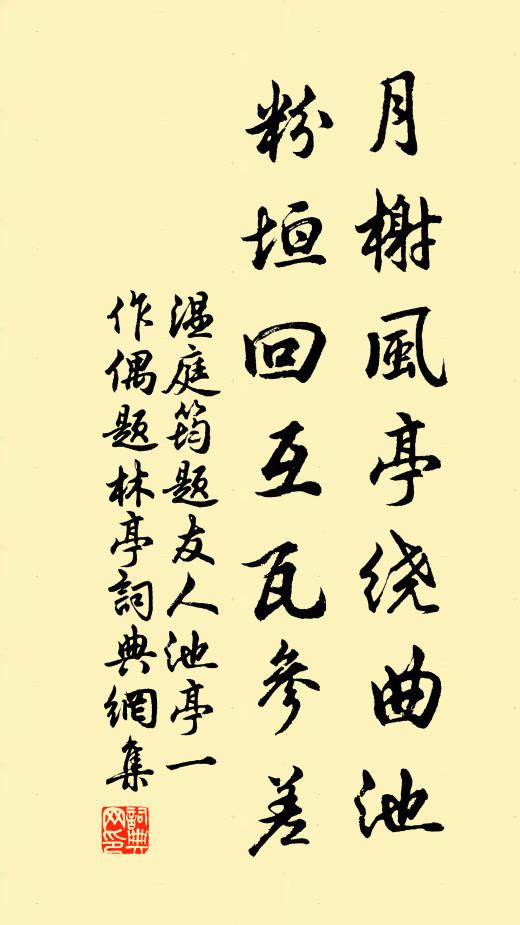 月榭風亭绕曲池
粉垣回互瓦參差
温庭筠題友人池亭一
作偶題林亭詞典網集
詞典
网印